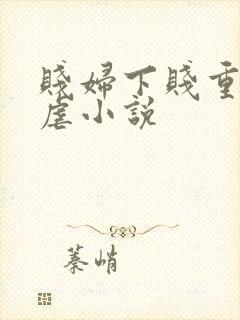 賤婦下賤重
虐小說
蓁峭